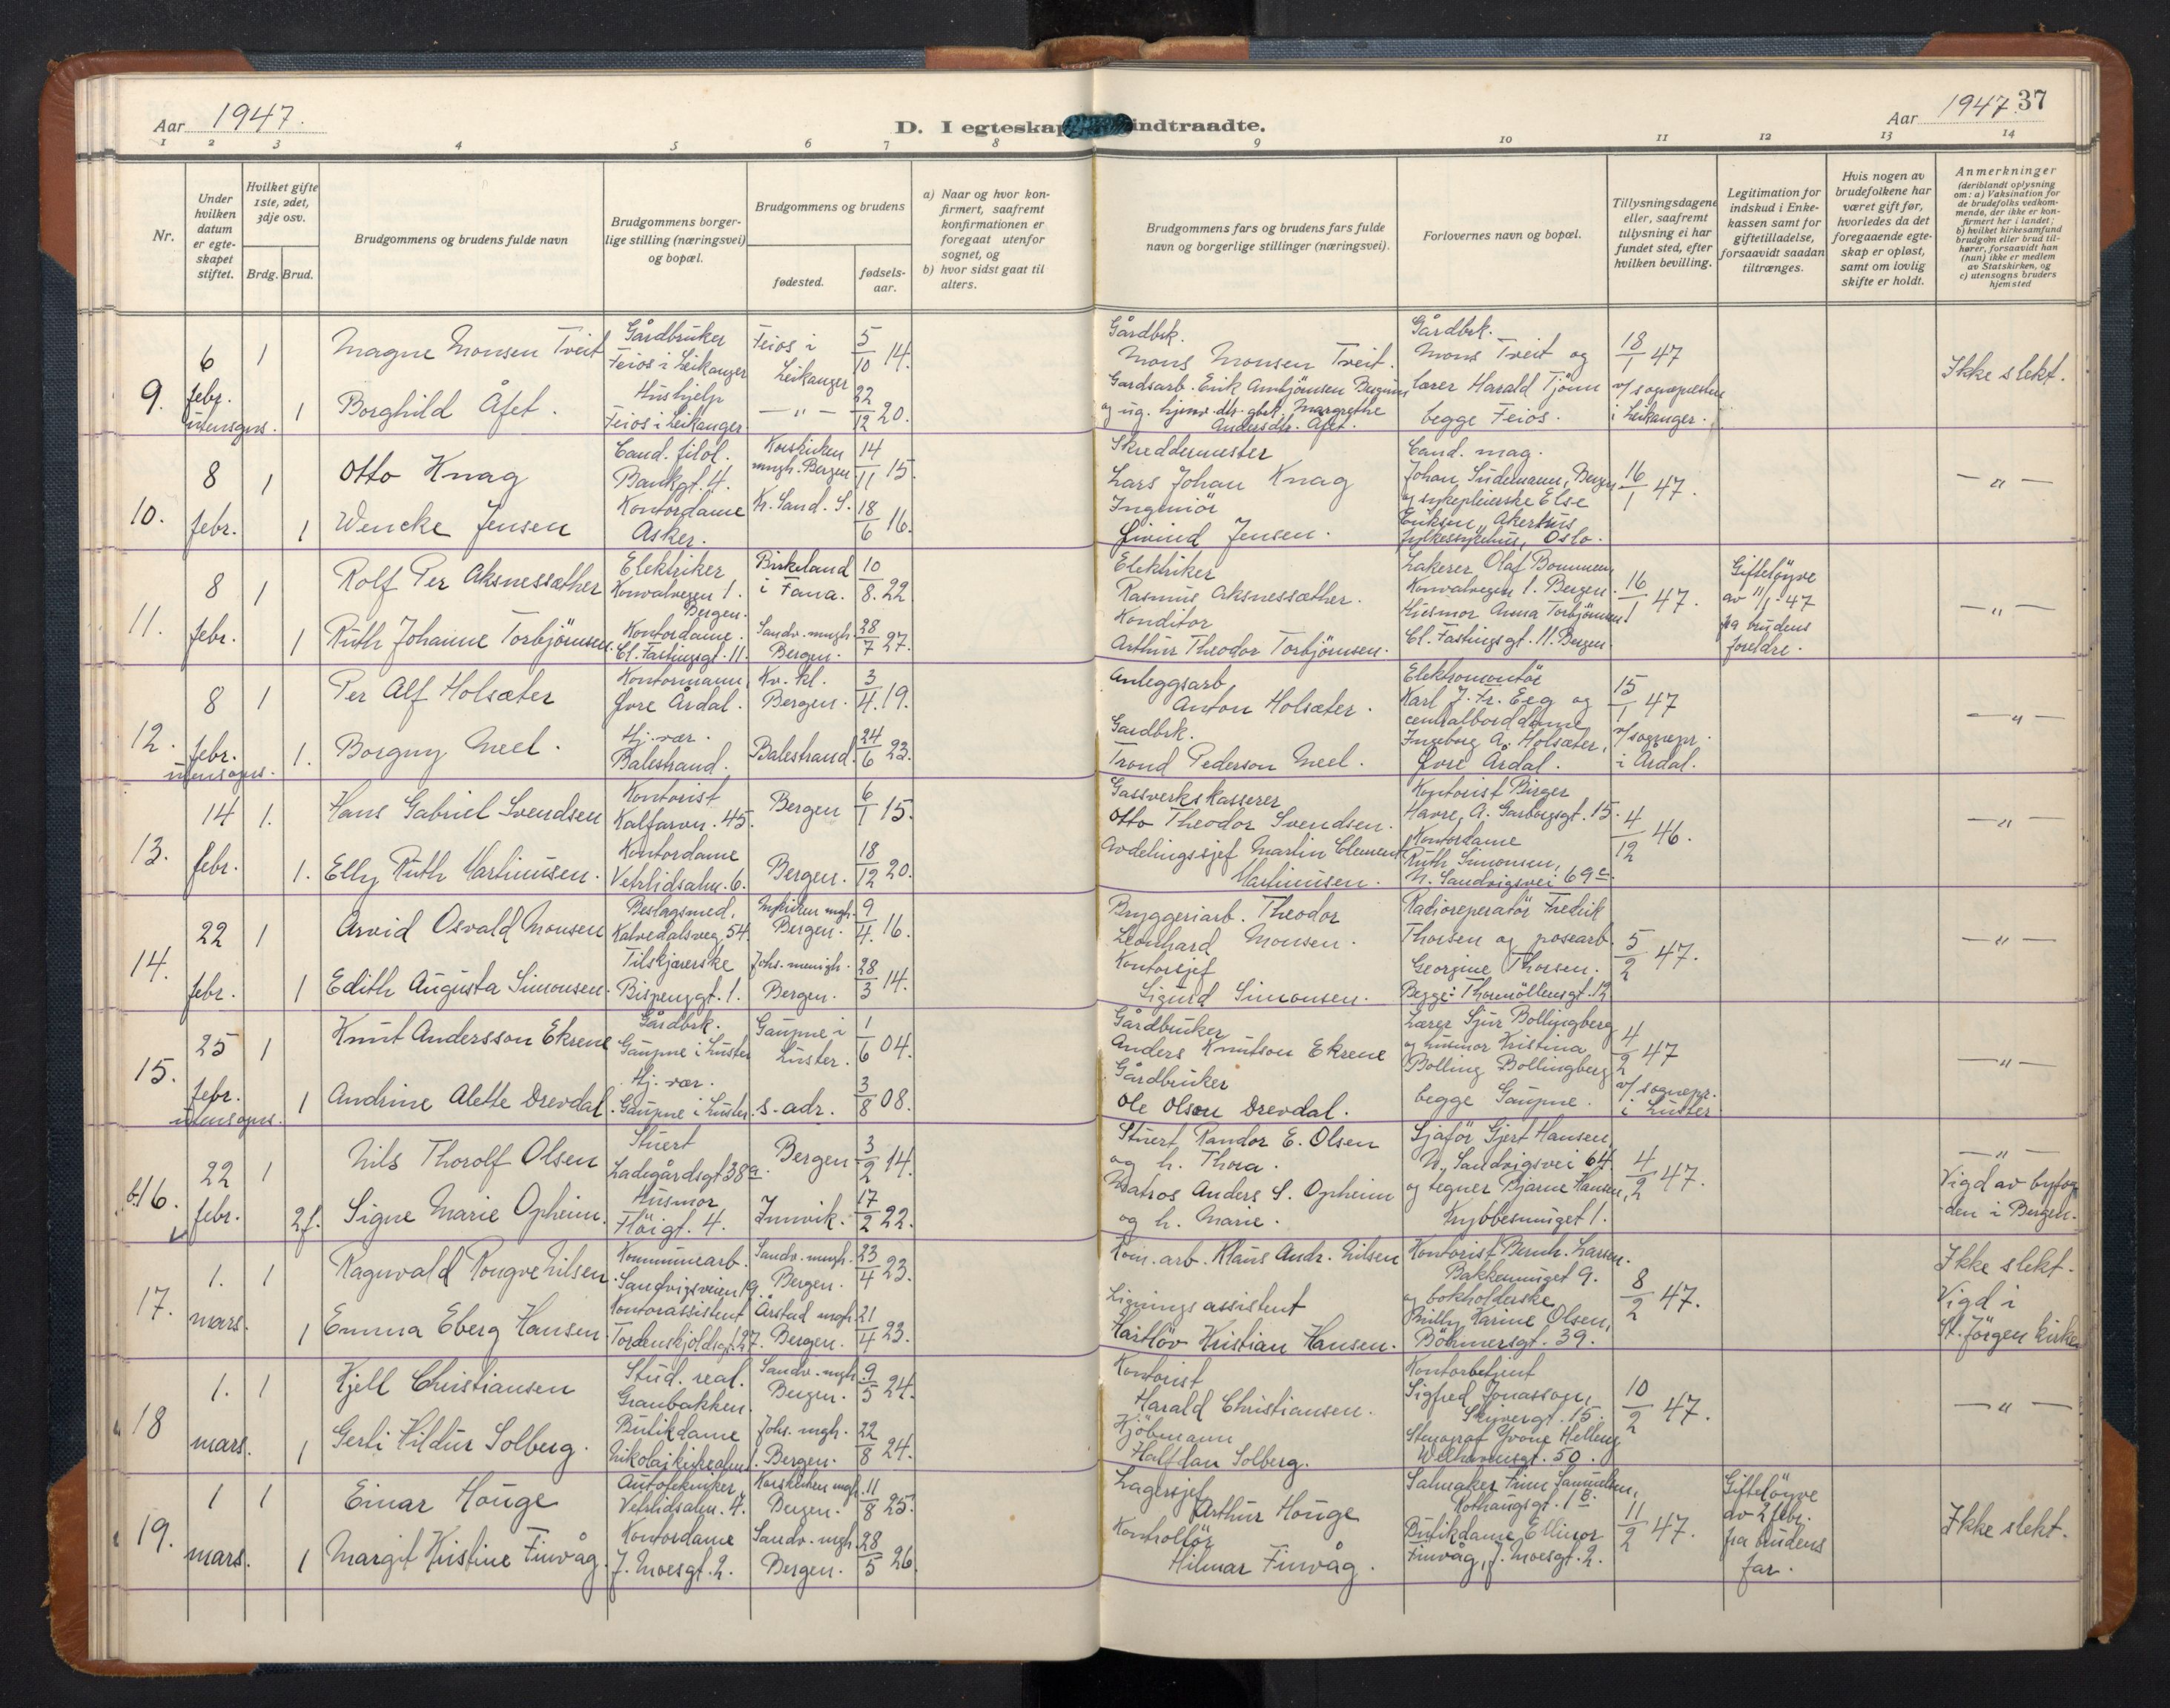 Aar 1947.
D. I egteskap indtraadte.
Aar 1947. 37
1 2 3 4 5 6 7 8 9 10 11 12 13 14
Nr.
Under hvilken datum er egteskapet stiftet.
Hvilket gifte 1ste, 2det, 3dje osv.
Brdg. Brud.
Brudgommens og brudens fulde navn
Brudgommens borgerlige stilling (næringsvei) og bopæl.
Brudgommens og brudens
fødested.
fødselsaar.
a) Naar og hvor konfirmert, saafremt konfirmationen er foregaat utenfor sognet, og
b) hvor sidst gaat til alters.
Brudgommens fars og brudens fars fulde navn og borgerlige stillinger (næringsvei).
Forlovernes navn og bopæl.
Tillysningsdagene eller, saafremt tillysning ei har fundet sted, efter hvilken bevilling.
Legitimation for indskud i Enkekassen samt for giftetilladelse, forsaavidt saadan tiltrænges.
Hvis nogen av brudefolkene har været gift før, hvorledes da det foregaaende egteskap er opløst, samt om lovlig skifte er holdt.
Anmerkninger
(deriblandt oplysning om: a) Vaksination for de brudefolks vedkommende, der ikke er konfirmert her i landet; b) hvilket kirkesamfund brudgom eller brud tilhører, forsaavidt han (hun) ikke er medlem av Statskirken, og c) utensogns bruders hjemsted
9. 6 febr. utensogns. 1 1
Magne Monsen Tveit
Gårdbruker Feios i Leikanger
Feios i Leikanger 5/10 14.
Borghild Åfet.
Hushjelp Feios i Leikanger
— " — 22/12 20.
Gårdbrk. Mons Monsen Tveit.
Gardsarb. Erik Ambjörnsen Bergum
og ug. hjemv. dtr. gbrk. Margrethe Andersdtr. Åfet.
Gårdbrk. Mons Tveit og
lærer Harald Tjönn
begge Feios.
18/1 47 v/ sognepresten i Leikanger.
Ikke slekt.
10. 8 febr. 1 1
Otto Knag
Cand. filol. Bankgt. 4.
Korskirken mngh. Bergen 14/11 15.
Wencke Jensen
Kontordame Asker.
Kr. Sand. S. 18/6 16.
Skreddermester Lars Johan Knag
Ingeniör Eivind Jensen.
Cand. mag. Johan Sudemann, Bergen
og sykepleierske Else Eriksen, Akershus fylkessykehus, Oslo.
16/1 47.
— " —
11. 8 febr. 1 1
Rolf Per Aksnessæther
Elektriker Konvalvegen 1. Bergen.
Birkeland i Fana. 10/8. 22
Ruth Johanne Torbjörnsen.
Kontordame. Cl. Fastingsgt. 11.
Sandv. mngh. Bergen. 28/7 27.
Elektriker Rasmus Aksnessæther.
Konditor Arthur Theodor Torbjörnsen.
Lakerer Olaf Bommen, Konvalvegen 1. Bergen.
Husmor Anna Torbjörnsen Cl. Fastingsgt. 11. Bergen.
16/1 47.
Giftelöyve av 11/1-47 fra brudens foreldre.
— " —
12. 8 febr. utensogns. 1 1.
Per Alf Holsæter
Kontormann, Øvre Årdal.
Kv. kl. Bergen. 3/4. 19.
Borgny Meel.
Hj. vær. Balestrand.
Balestrand. 24/6 23.
Anleggsarb. Anton Holsæter.
Gardbrk. Trond Pederson Meel.
Elektromontör Karl J. Fr. Eeg og
centralborddame Ingeborg A. Holsæter, Øvre Årdal.
15/1 47 v/ sognepr. i Årdal.
— " —
13. 14 febr. 1. 1.
Hans Gabriel Svendsen
Kontorist Kalfarvn. 45.
Bergen 6/1 15.
Elly Ruth Martinusen.
Kontordame Vetrlidsalm. 6.
Bergen. 18/12 20.
Gassverkskasserer Otto Theodor Svendsen.
Avdelingssjef Martin Clement Martinusen.
Kontorist Birger Havre, A. Garborgsgt. 15.
Kontordame Ruth Simonsen, N. Sandvigsvei 69c.
4/12 46.
— " —
14. 22 febr. 1 1
Arvid Osvald Monsen
Beslagsmed, Kalvedalsveg 54.
Nykirken mgh. Bergen. 9/4. 16.
Edith Augusta Simonsen.
Tilskjærerske Bispenggt. 1.
Johs. menigh. Bergen. 28/3 14.
Bryggeriarb. Theodor Leonhard Monsen.
Kontorsjef Sigurd Simonsen.
Radioreparatör Fredrik Thorsen og posearb.
Georgine Thorsen. Begge: Thormöllensgt. 12
5/2 47.
— " —
15. 25 febr. utensogns. 1 1
Knut Andersson Ekrene
Gårdbrk. Gaupne i Luster
Gaupne i Luster. 1/6 04.
Andrine Alette Drevdal.
Hj. vær. Gaupne i Luster.
s. adr. 3/8 08.
Gårdbruker Anders Knutson Ekrene
Gårdbruker Ole Olson Drevdal.
Lærer Sjur Bollingberg
og husmor Kristina Bolling Bollingberg
begge Gaupne.
4/2 47 v/ sognepr. i Luster
— " —
b. 16. 22 febr. 1 2 f.
Nils Thorolf Olsen
Stuert Ladegårdsgt 38a.
Bergen 3/2 14.
Signe Marie Opheim.
Husmor Flöigt. 4.
Innvik. 17/2 22.
Stuert Randor E. Olsen og h. Thora.
Matros Anders S. Opheim og h. Marie.
Sjåför Gjert Hansen, N. Sandvigsvei 64
og tegner Bjarne Hansen, Krybbesmuget 1.
4/2 47.
— " —
Vigd av byfogden i Bergen.
17. 1. mars. 1 1
Ragnvald Rongve Nilsen
Kommunearb. Sandvigsveien 19.
Sandv. mngh. Bergen. 23/4 23.
Emma Eberg Hansen.
Kontorassistent Tordenskjoldsgt. 27.
Årstad mngh. Bergen. 21/4 23.
Kom. arb. Klaus Andr. Nilsen
Ligningsassistent Hartlöv Kristian Hansen.
Kontorist Bernh. Larsen. Bakkesmuget 9.
og bokholderske Billy Karine Olsen, Böhmersgt. 39.
8/2 47.
Ikke slekt.
Vigd i St. Jörgen kirke
18 1. mars. 1 1
Kjell Christiansen
Stud. real. Graubakken.
Sandv. mngh. Bergen. 9/5 24.
Gerti Hildur Solberg.
Butikdame Nikolaikirkealm. 1.
Johs. mngh. Bergen. 22/8 24.
Kontorist Harald Christiansen.
Kjöbmann Halfdan Solberg.
Kontorbetjent Sigfred Jonasson, Skivergt. 15.
Stenograf Yvone Helleng Welhavensgt. 50.
10/2 47.
— " —
19. 1 mars. 1 1
Einar Houge
Autotekniker, Vetrlidsalm. 4.
Korskirken mngh. Bergen. 11/8 25.
Margit Kristine Finvåg.
Kontordame J. Moesgt. 2.
Sandv. mngh. Bergen. 28/5 26.
Lagersjef Arthur Houge
Kontrollör Hilmar Finvåg.
Salmaker Finn Samuelsen, Rothaugsgt. 1 B.
Butikdame Ellinor Finvåg, J. Moesgt. 2.
11/2 47.
Giftelöyve av 2 febr. fra brudens far.
Ikke slekt.